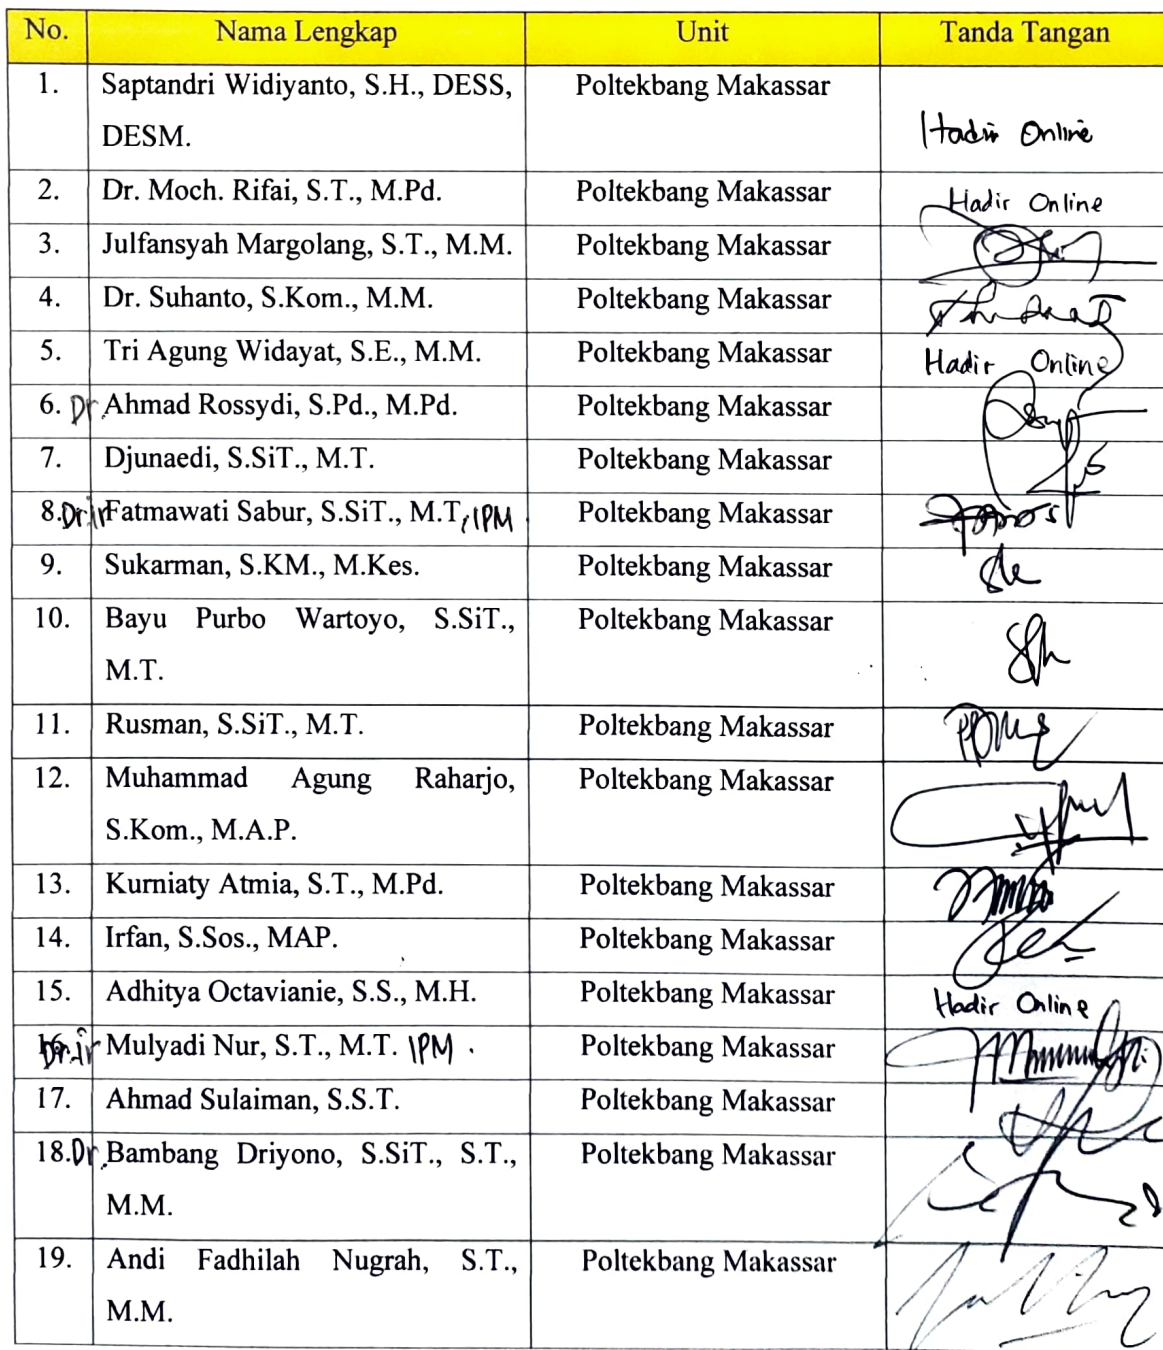 No. Nama Lengkap Unit Tanda Tangan
1. Saptandri Widiyanto, S.H., DESS, Poltekbang Makassar
DESM. Hadir Online
2. Dr. Moch. Rifai, S.T., M.Pd. Poltekbang Makassar Hadir Online
3. Julfansyah Margolang, S.T., M.M. Poltekbang Makassar
4. Dr. Suhanto, S.Kom., M.M. Poltekbang Makassar
5. Tri Agung Widayat, S.E., M.M. Poltekbang Makassar Hadir Online
6. Dr. Ahmad Rossydi, S.Pd., M.Pd. Poltekbang Makassar
7. Djunaedi, S.SiT., M.T. Poltekbang Makassar
8. Dr. ir Fatmawati Sabur, S.SiT., M.T, IPM Poltekbang Makassar
9. Sukarman, S.KM., M.Kes. Poltekbang Makassar
10. Bayu Purbo Wartoyo, S.SiT., Poltekbang Makassar
M.T.
11. Rusman, S.SiT., M.T. Poltekbang Makassar
12. Muhammad Agung Raharjo, Poltekbang Makassar
S.Kom., M.A.P.
13. Kurniaty Atmia, S.T., M.Pd. Poltekbang Makassar
14. Irfan, S.Sos., MAP. Poltekbang Makassar
15. Adhitya Octavianie, S.S., M.H. Poltekbang Makassar Hadir Online
16. Dr. ir Mulyadi Nur, S.T., M.T. IPM . Poltekbang Makassar
17. Ahmad Sulaiman, S.S.T. Poltekbang Makassar
18. Dr. Bambang Driyono, S.SiT., S.T., Poltekbang Makassar
M.M.
19. Andi Fadhilah Nugrah, S.T., Poltekbang Makassar
M.M.